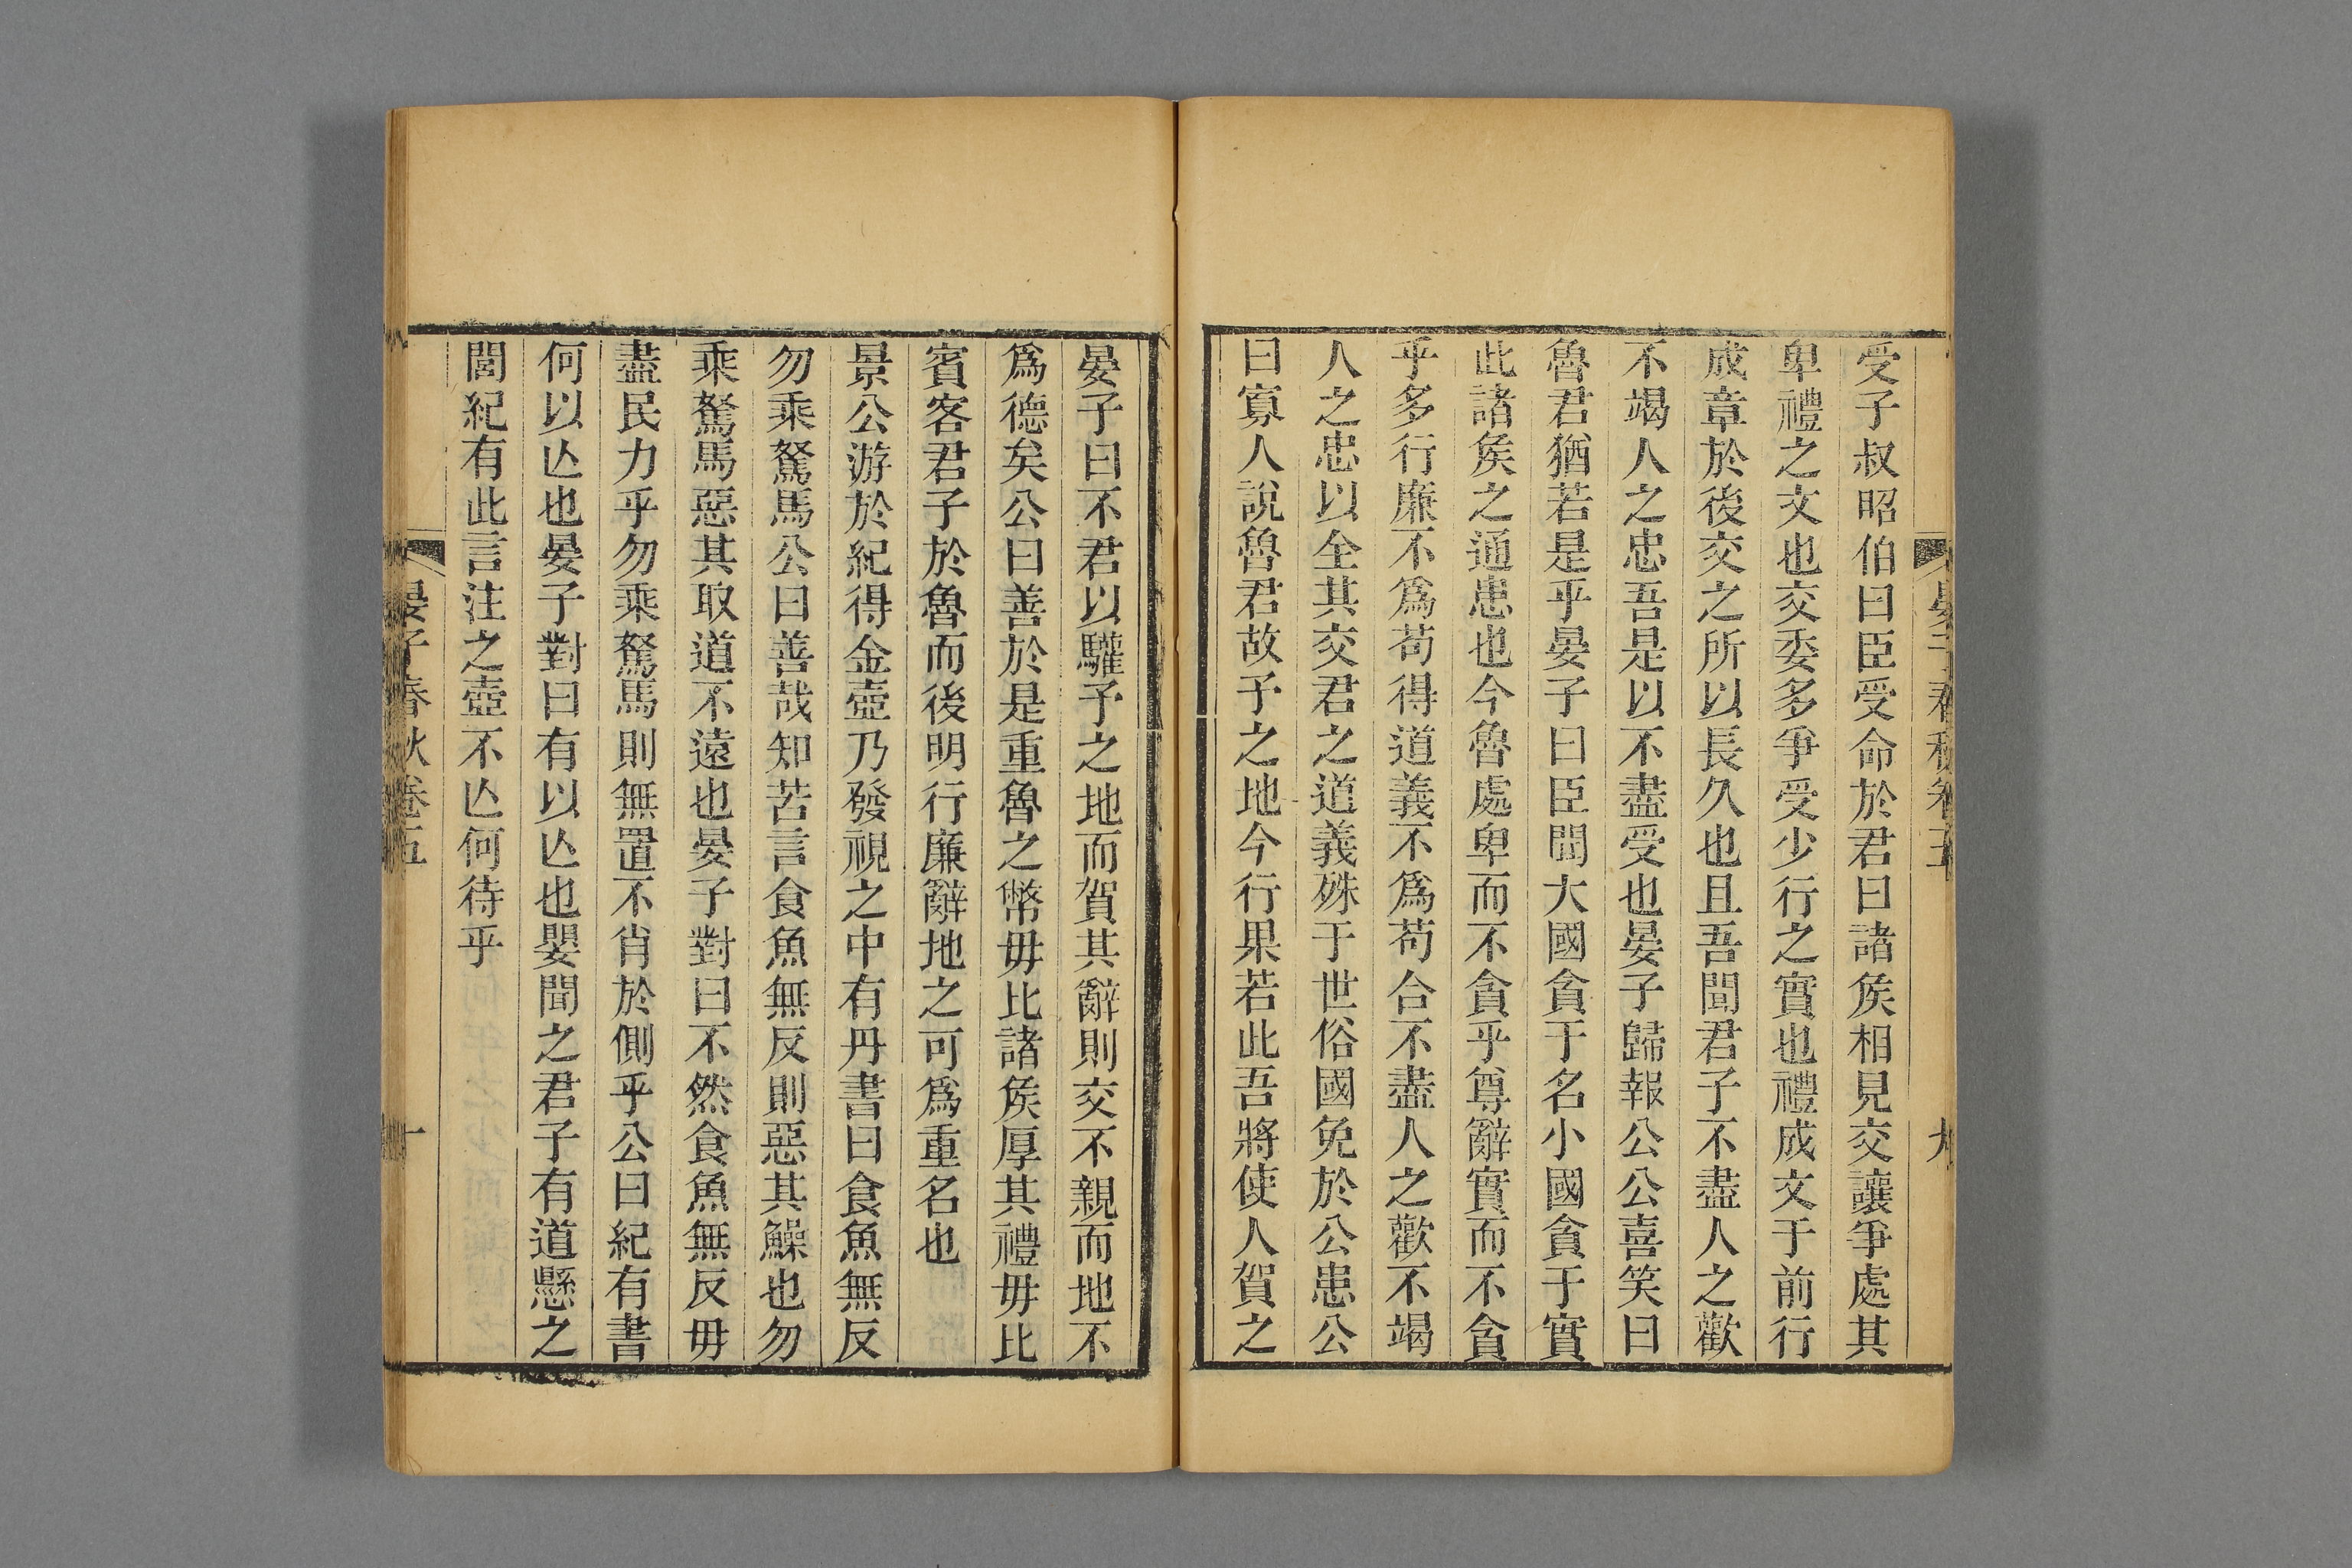 受子叔昭伯曰臣受命於君曰諸矦相見交讓爭處其
卑禮之文也交委多爭受少行之實也禮成文于前行
成章於後交之所以長久也且吾聞君子不盡人之歡
不竭人之忠吾是以不盡受也晏子歸報公公喜笑曰
魯君猶若是乎晏子曰臣聞大國貪于名小國貪于實
此諸矦之通患也今魯處卑而不貪乎尊辭實而不貪
乎多行廉不爲苟得道義不爲苟合不盡人之歡不竭
人之忠以全其交君之道義殊于世俗國免於公患公
曰寡人說魯君故予之地今行果若此吾將使人賀之
晏子曰不君以驩予之地而賀其辭則交不親而地不
爲德矣公曰善於是重魯之幣毋比諸矦厚其禮毋比
賓客君子於魯而後明行廉辭地之可爲重名也
景公游於紀得金壺乃發視之中有丹書曰食魚無反
勿乘駑馬公曰善哉知苦言食魚無反則惡其鱢也勿
乘駑馬惡其取道不遠也晏子對曰不然食魚無反毋
盡民力乎勿乘駑馬則無置不肖於側乎公曰紀有書
何以亾也晏子對曰有以亾也嬰聞之君子有道懸之
閭紀有此言注之壺不亾何待乎
晏子春秋卷五
十